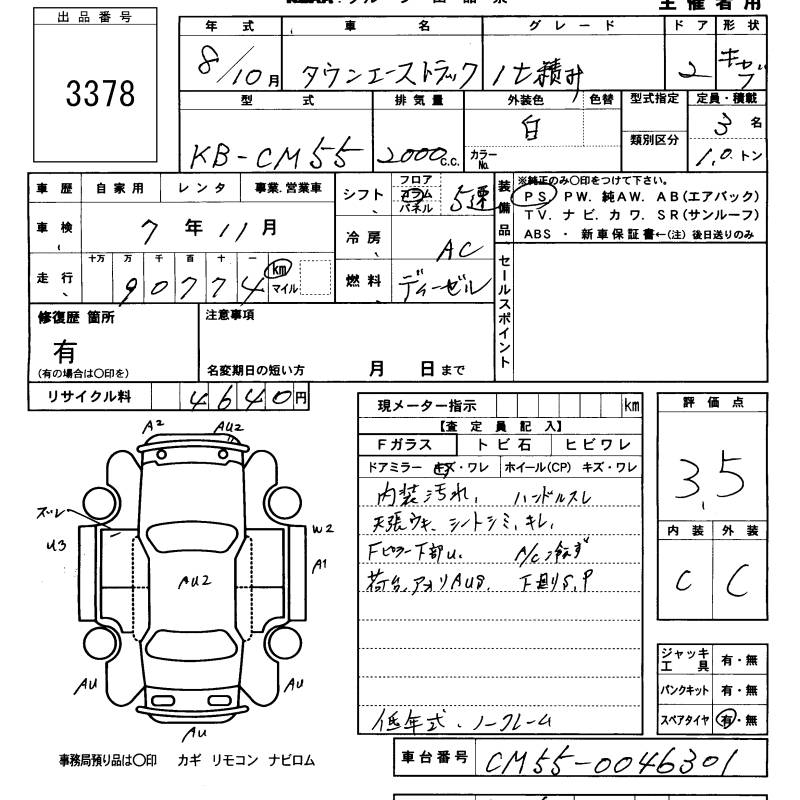 主催者用
出品番号
3378
年式 車名 グレード ドア 形状
8/10月 タウンエーストラック 1t積み 2 キャブ
型式 排気量 外装色 色替 型式指定 定員・積載
KB-CM55 2000c.c. 白 カラーNo. 類別区分 3名
1.0トン
車歴 自家用 レンタ 事業.営業車
車検 7年11月
走行 十万 万 千 百 十 一
90774 km マイル
シフト フロア コラム パネル 5速
冷房 AC
燃料 ディーゼル
装備品
※純正のみ○印をつけて下さい。
PS. PW. 純AW. AB(エアバック)
TV. ナビ. カワ. SR(サンルーフ)
ABS ・ 新車保証書←(注) 後日送りのみ
セールスポイント
修復歴 箇所
有
(有の場合は○印を)
注意事項
名変期日の短い方 月 日まで
リサイクル料 4640円
現メーター指示 km
【査定員記入】
Fガラス トビ石 ヒビワレ
ドアミラー キズ・ワレ ホイール(CP) キズ・ワレ
内装汚れ, ハンドルスレ
天張ウキ, シートシミ, キレ,
Fピラー下部U. A/C冷えず
荷台,アオリAU8. 下廻りS,P
低年式・ノークレーム
評価点
3.5
内装 外装
C C
ジャッキ工具 有・無
パンクキット 有・無
スペアタイヤ 有・無
A2 AU2
ズレ
U3
W2
A1
AU2
AU
AU
AU
事務局預り品は○印 カギ リモコン ナビロム
車台番号 CM55-0046301